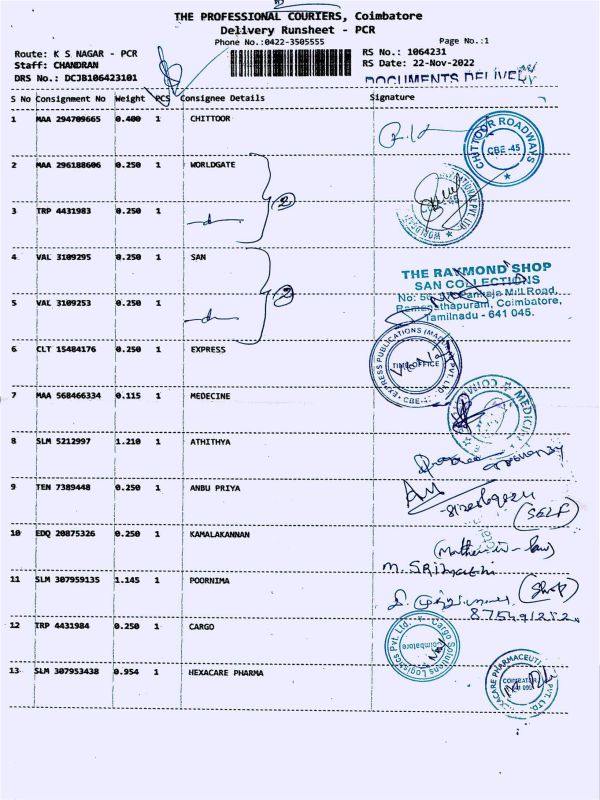 THE PROFESSIONAL COURIERS, Coimbatore
Delivery Runsheet - PCR
Phone No.:0422-3505555 Page No.:1
Route: K S NAGAR - PCR RS No.: 1064231
Staff: CHANDRAN RS Date: 22-Nov-2022
DRS No.: DCJB106423101 DOCUMENTS DELIVERY
S No Consignment No Weight PCS Consignee Details Signature
1 MAA 294709665 0.400 1 CHITTOOR
CHITTOOR ROADWAYS
CBE-45
2 MAA 296188606 0.250 1 WORLDGATE
2
3 TRP 4431983 0.250 1
4 VAL 3109295 0.250 1 SAN
THE RAYMOND SHOP
SAN COLLECTIONS
Mill Road,
Ramanathapuram, Coimbatore,
Tamilnadu - 641 045.
2
5 VAL 3109253 0.250 1
6 CLT 15484176 0.250 1 EXPRESS
EXPRESS PUBLICATIONS (MADURAI) PVT. LTD.
TIME OFFICE
7 MAA 568466334 0.115 1 MEDECINE
8 SLM 5212997 1.210 1 ATHITHYA
9 TEN 7389448 0.250 1 ANBU PRIYA
(SELF)
10 EDQ 20875326 0.250 1 KAMALAKANNAN
(Mother in-law)
M. SRIMATHI
11 SLM 307959135 1.145 1 POORNIMA
12 TRP 4431984 0.250 1 CARGO
Cargo Solutions Logistics Pvt. Ltd.
Coimbatore
13 SLM 307953438 0.954 1 HEXACARE PHARMA